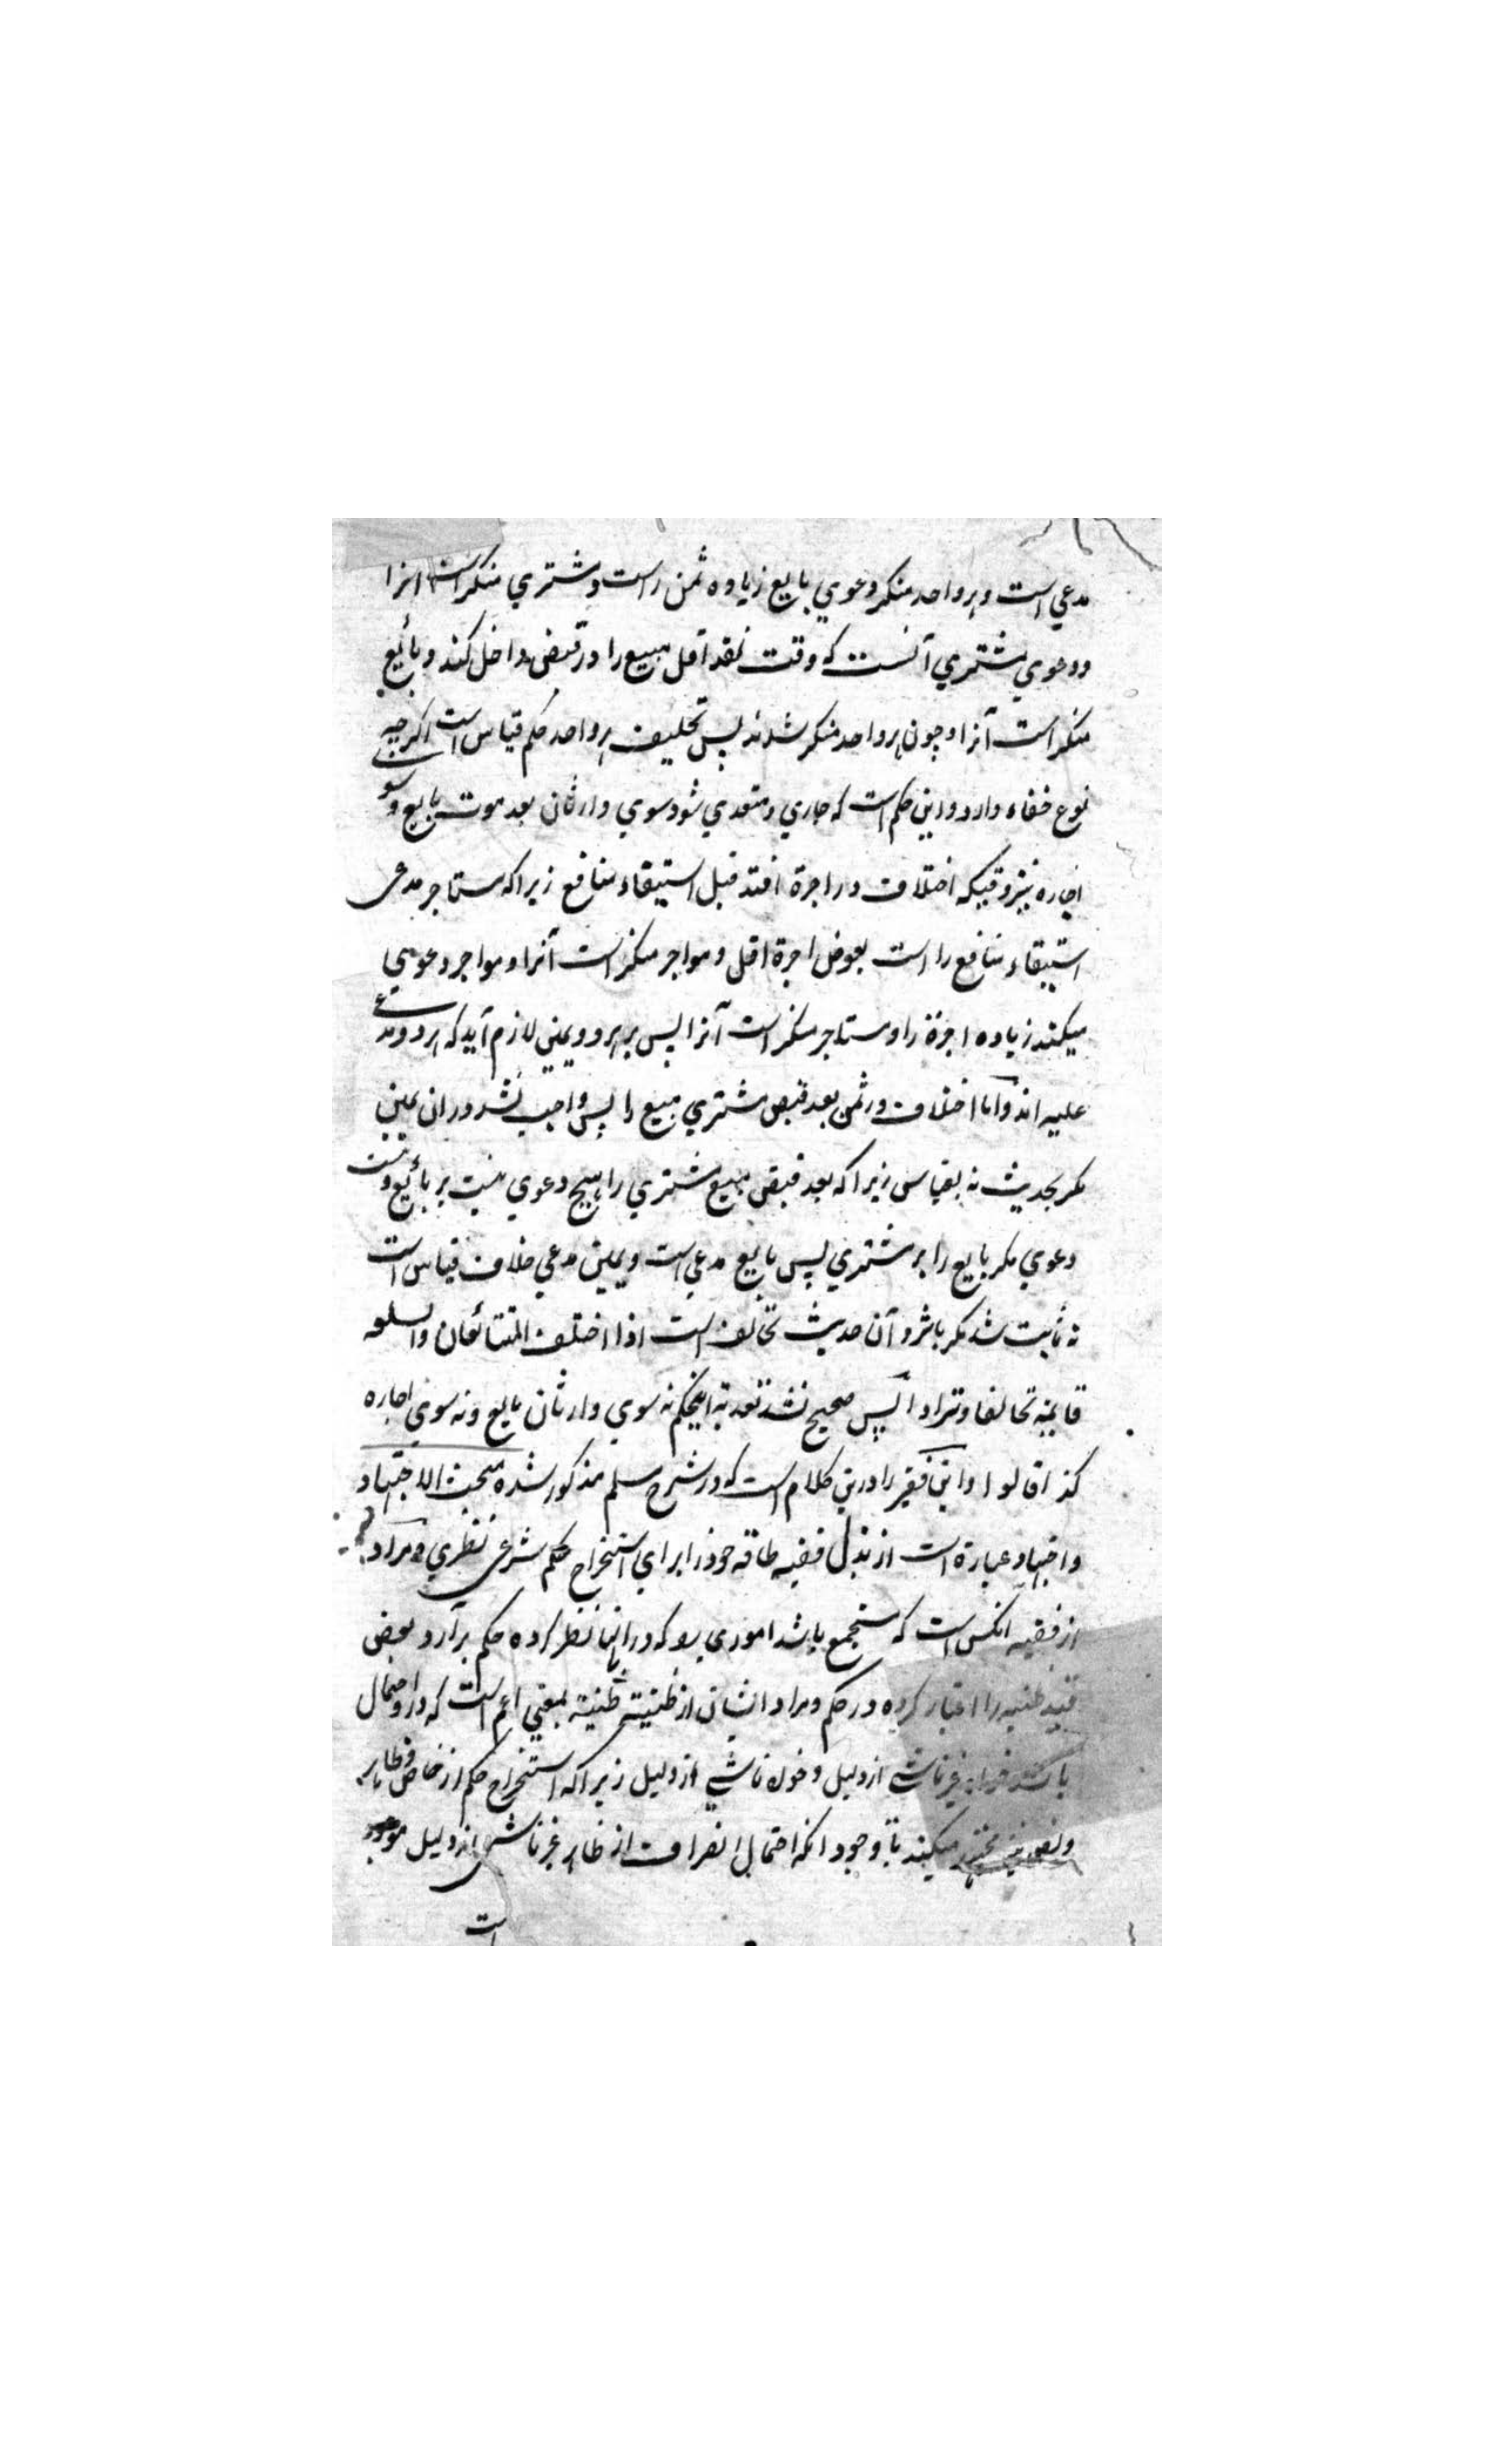 مدعي است و هر واحد منکر دعوي بايع زياده ثمن راست و مشتري منکر است انرا
و دعوي مشتري آنست که وقت نقد اقل مبيع را در قبض داخل کند و بائع
منکر است آنرا و چون هر واحد منکر شدند پس تحليف هر واحد حکم قياس است اگرچه
نوع خفاء دارد و اين حکم است که جاري و متعدي شود سوي وارثان بعد موت بايع و سوي
اجاره نيز وقتيکه اختلاف در اجرة افتد قبل استيفاء منافع زيرا که مستاجر مدعى
استيفاء منافع را است بعوض اجرة اقل و مواجر منکر است آنرا و مواجر دعوي
ميکند زياده اجرة را و مستاجر منکر است آنرا پس بر هر دو يمين لازم آيد که هر دو مدعى
عليه اند و اما اختلاف در ثمن بعد قبض مشتري مبيع را پس واجب نشد دران يمين
مگر بحديث نه بقياس زيرا که بعد قبض مبيع مشتري را هيچ دعوي نيست بر بائع و نيست
دعوي مگر بايع را بر مشتري پس بايع مدعي است و يمين مدعي خلاف قياس است
نه ثابت شد مگر باثر و آن حديث تحالف است اذا اختلف المتبائعان والسلعه
قايمة تحالفا وترادا پس صحيح نشد تعديه اينحکم نه سوي وارثان بايع و نه سوي اجاره
کذا قالوا و اين فقير را درين کلام است که در شرح سلم مذکور شده مبحث الاجتهاد
و اجتهاد عبارة است از بذل فقيه طاقه خود را براي استخراج حکم شرعى نظري و مراد
از فقيه انکس است که مستجمع باشد اموري را که در انها نظر کرده حکم برآرد و بعض
قيد ظنيه را اعتبار کرده در حکم و مراد ايشان از ظنية ظنية بمعني اعم است که در و احتمال
باشد خواه غير ناشي از دليل و خواه ناشي از دليل زيرا که استخراج حکم از خاص و ظاهر
و نص نيز مجتهد ميکند با وجود انکه احتمال انصراف از ظاهر غير ناشى از دليل موجود
است